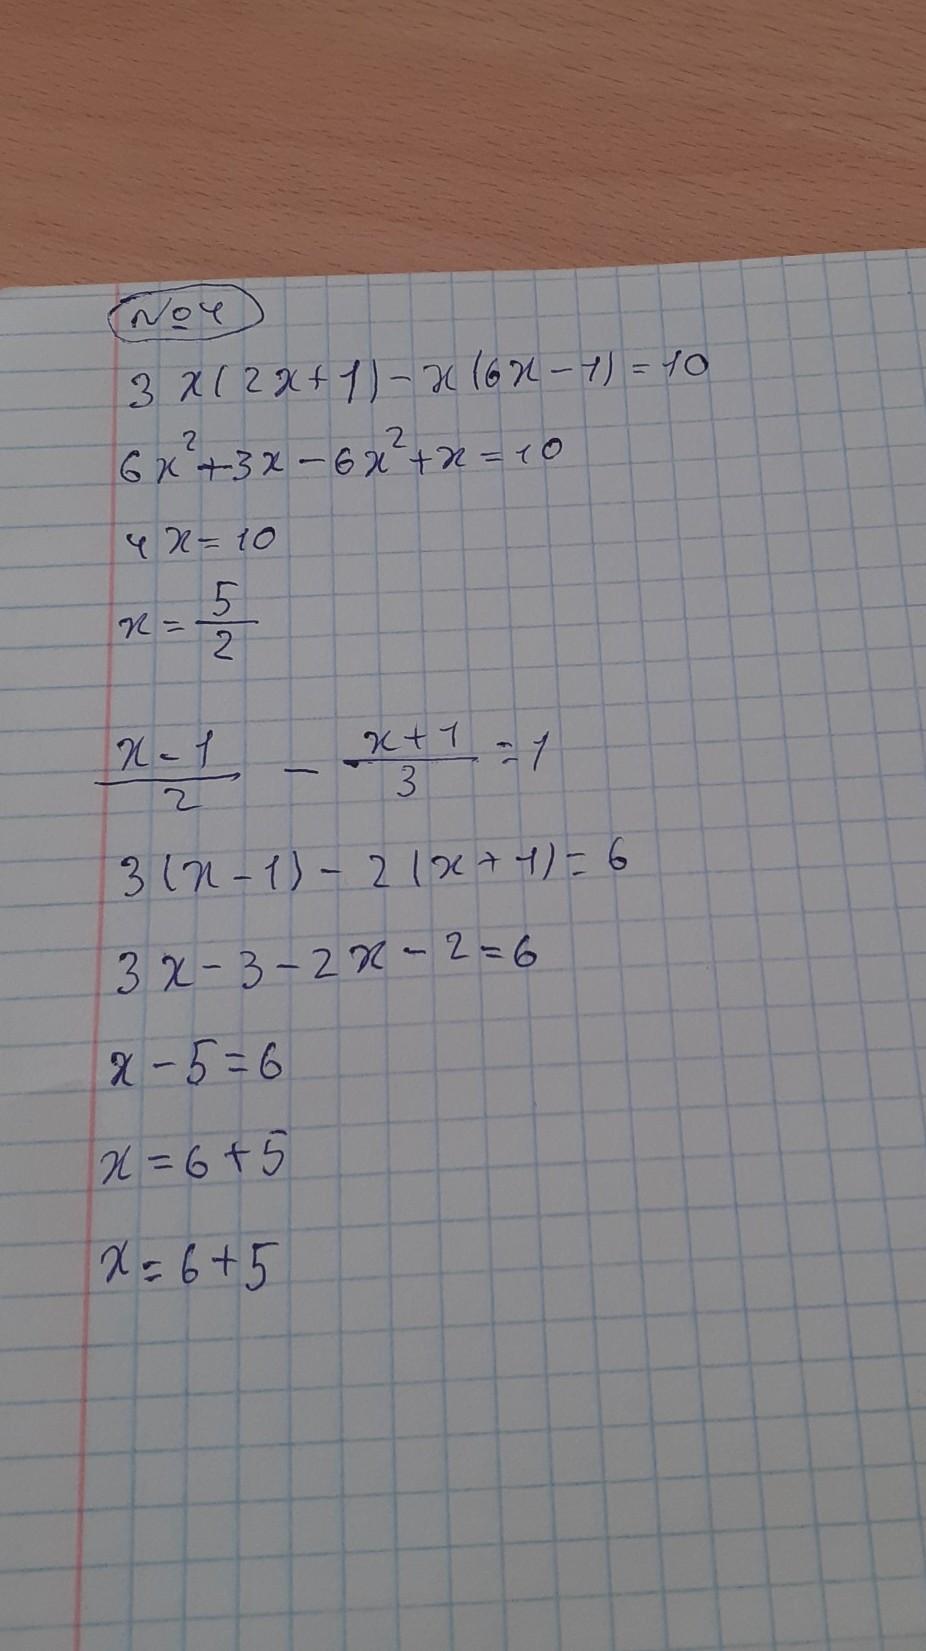 №4
3x(2x+1)-x(6x-1)=10
6x²+3x-6x²+x=10
4x=10
x=5/2
(x-1)/2 - (x+1)/3 =1
3(x-1)-2(x+1)=6
3x-3-2x-2=6
x-5=6
x=6+5
x=6+5